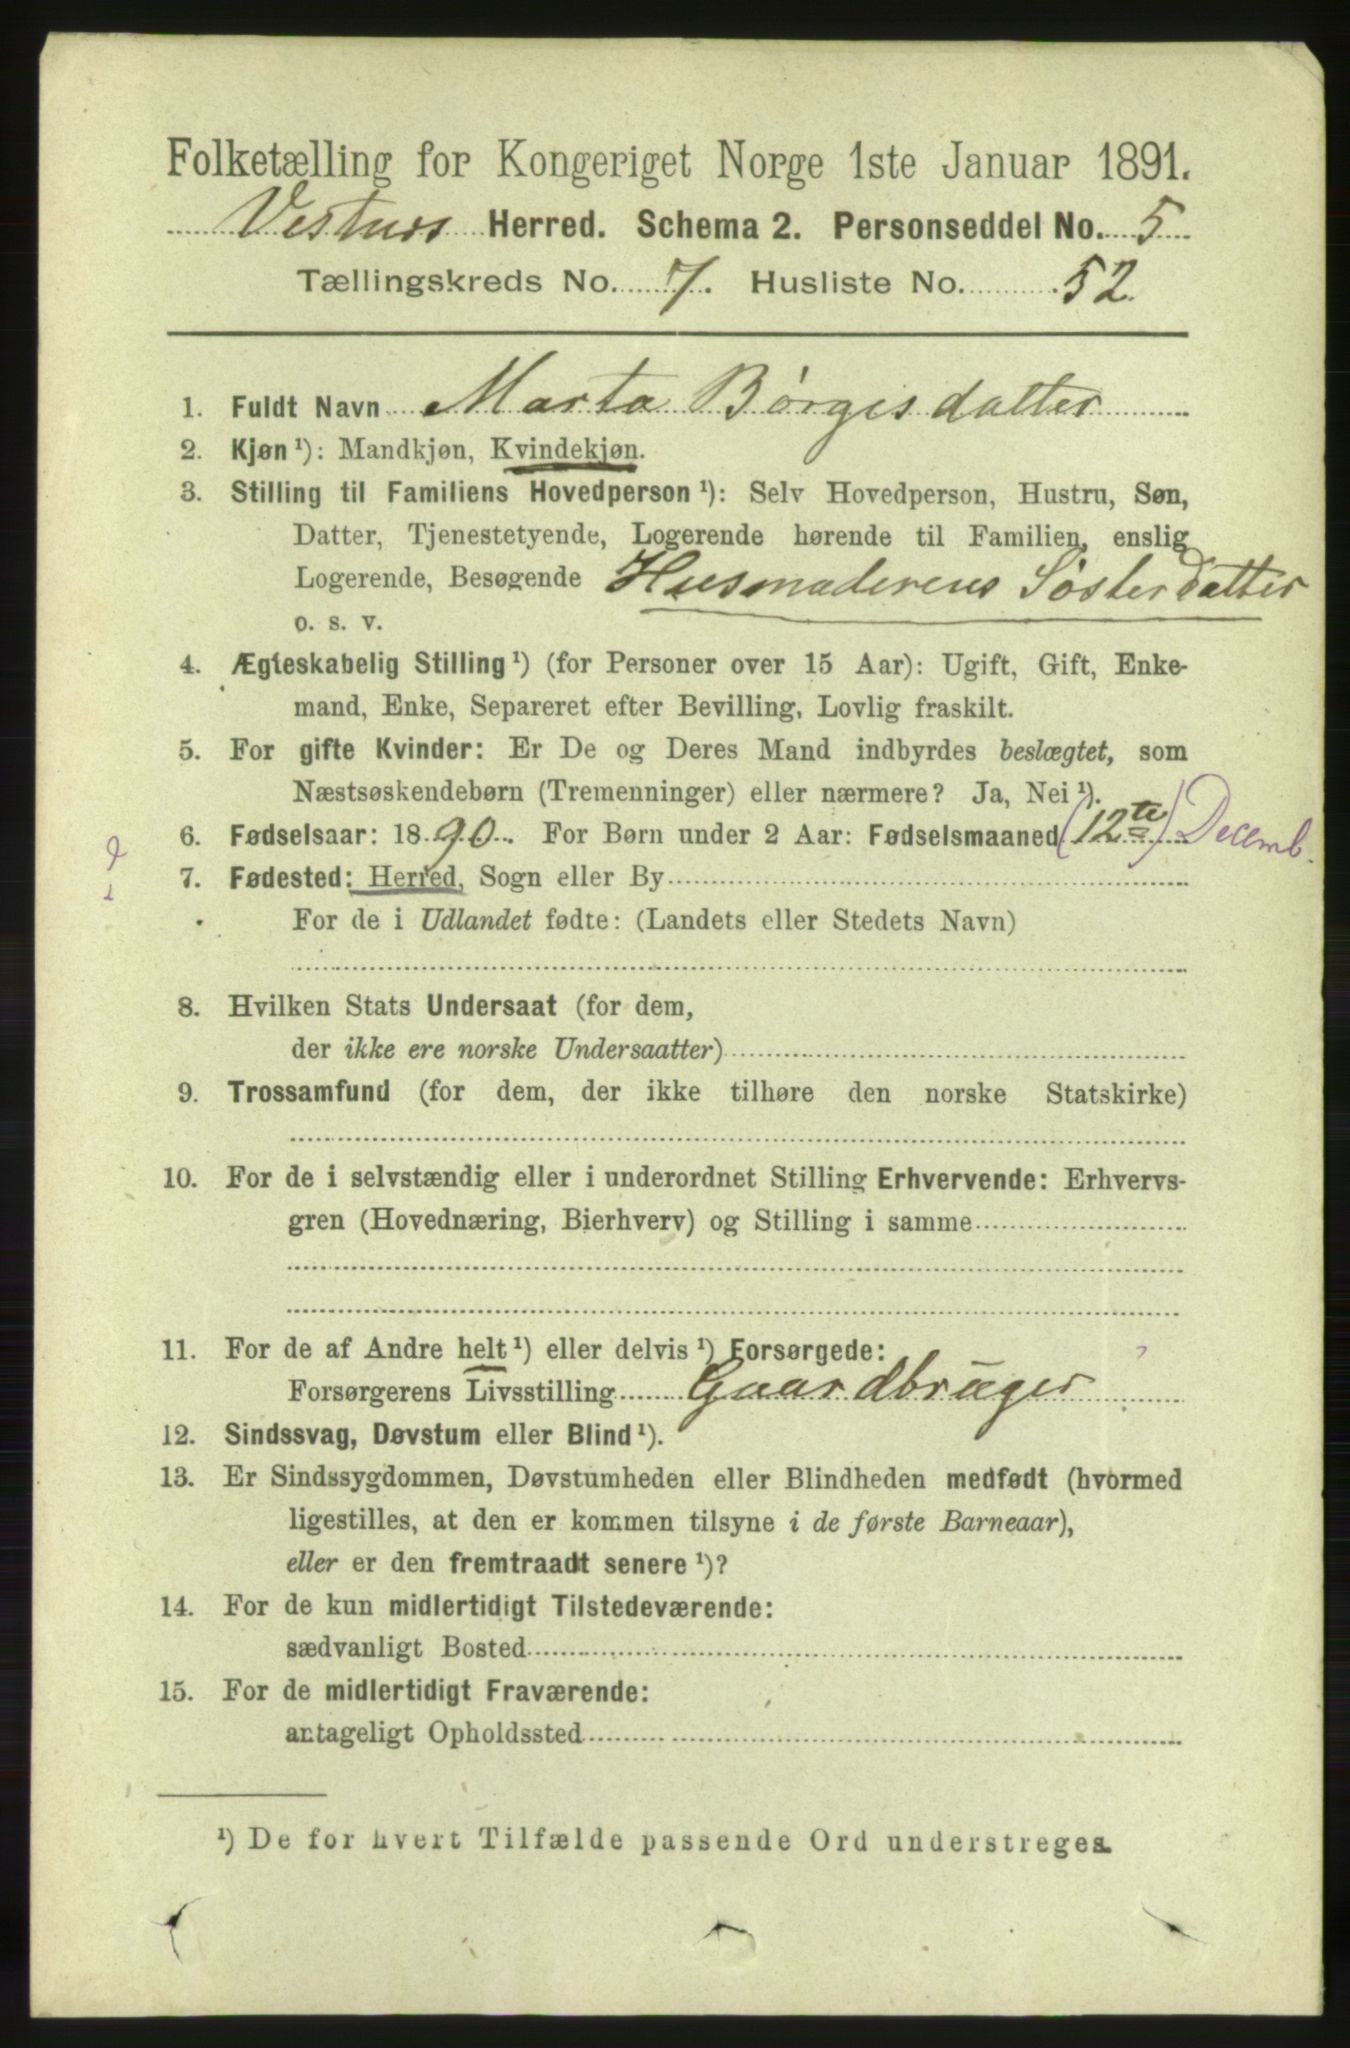 Folketælling for Kongeriget Norge 1ste Januar 1891.
Vestnes Herred. Schema 2. Personseddel No. 5
Tællingskreds No. 7. Husliste No. 52.
1. Fuldt Navn Marta Børgesdatter
2. Kjøn ¹): Mandkjøn, Kvindekjøn.
3. Stilling til Familiens Hovedperson ¹): Selv Hovedperson, Hustru, Søn,
Datter, Tjenestetyende, Logerende hørende til Familien, enslig
Logerende, Besøgende Husmoderens Søsterdatter
o. s. v.
4. Ægteskabelig Stilling ¹) (for Personer over 15 Aar): Ugift, Gift, Enke-
mand, Enke, Separeret efter Bevilling, Lovlig fraskilt.
5. For gifte Kvinder: Er De og Deres Mand indbyrdes beslægtet, som
Næstsøskendebørn (Tremenninger) eller nærmere? Ja, Nei ¹).
6. Fødselsaar: 1890. For Børn under 2 Aar: Fødselsmaaned (12te) Decemb.
7. Fødested: Herred, Sogn eller By
For de i Udlandet fødte: (Landets eller Stedets Navn)
8. Hvilken Stats Undersaat (for dem,
der ikke ere norske Undersaatter)
9. Trossamfund (for dem, der ikke tilhøre den norske Statskirke)
10. For de i selvstændig eller i underordnet Stilling Erhvervende: Erhvervs-
gren (Hovednæring, Bierhverv) og Stilling i samme
11. For de af Andre helt ¹) eller delvis ¹) Forsørgede:
Forsørgerens Livsstilling Gaardbruger
12. Sindssvag, Døvstum eller Blind ¹).
13. Er Sindssygdommen, Døvstumheden eller Blindheden medfødt (hvormed
ligestilles, at den er kommen tilsyne i de første Barneaar),
eller er den fremtraadt senere ¹)?
14. For de kun midlertidigt Tilstedeværende:
sædvanligt Bosted
15. For de midlertidigt Fraværende:
antageligt Opholdssted
¹) De for hvert Tilfælde passende Ord understreges.